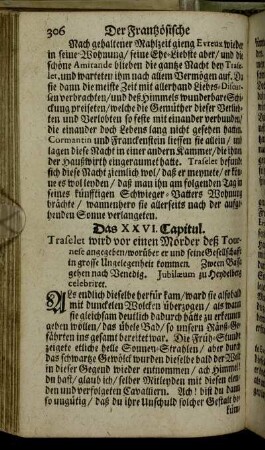 306 Der Frantzösische
Nach gehaltener Mahlzeit gieng Evreux wieder
in seine Wohnung / seine Ehe-Liebste aber / und die
schöne Amirande blieben die gantze Nacht bey Trase-
let, und warteten ihm nach allem Vermögen auf. Da
sie dann die meiste Zeit mit allerhand Liebes-Discur-
sen verbrachten / und deß Himmels wunderbare Schi-
ckung preiseten / welche die Gemüther dieser Verlieb-
ten und Verlobten so feste mit einander verbunden /
die einander doch Lebens lang nicht gesehen hatten.
Cormantin und Franckenstein liessen sie allein / und
lagen diese Nacht in einer andern Kammer / die ihnen
der Haußwirth eingeraumet hatte. Traselet befunde
sich diese Nacht ziemlich wol / daß er meynete / er kön-
ne es wol leyden / daß man ihn am folgenden Tag in
seines künfftigen Schwieger-Vatters Wohnung
brächte / wannenhero sie allerseits nach der aufge-
henden Sonne verlangeten.
Das XXVI. Capitul.
Traselet wird vor einen Mörder deß Tour-
nese angegeben / worüber er und seine Gesellschafft
in grosse Ungelegenheit kommen. Zween Baß
gehen nach Venedig. Jubilæum zu Heydelberg
celebriret.
ALs endlich dieselbe herfür kam / ward sie alsobald
mit dunckelen Wolcken überzogen / als wann
sie gleichsam deutlich dadurch hätte zu erkennen
geben wollen / das übele Bad / so unsern Räyß-Ge-
fährten ins gesamt bereitet war. Die Früh-Stunde
zeigete etliche helle Sonnen-Strahlen / aber durch
das schwartze Gewölck wurden dieselbe bald der Welt
in dieser Gegend wieder entnommen / ach Himmel!
du hast / glaub ich / selber Mitleyden mit diesen elen-
den und verfolgeten Cavalliern. Ach! bist du dann
so ungütig / daß du ihre Unschuld solcher Gestalt be-